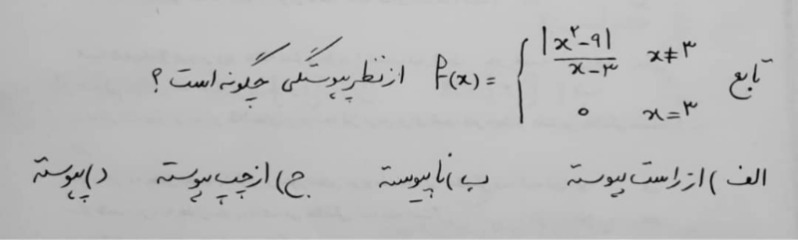 تابع f(x) = { |x²-۹| / x-۳   x≠۳ ; ۰   x=۳ از نظر پیوستگی چگونه است؟
الف) از راست پیوسته   ب) ناپیوسته   ج) از چپ پیوسته   د) پیوسته